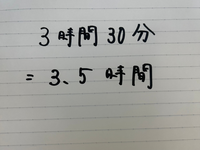 3時間30分
= 3.5時間